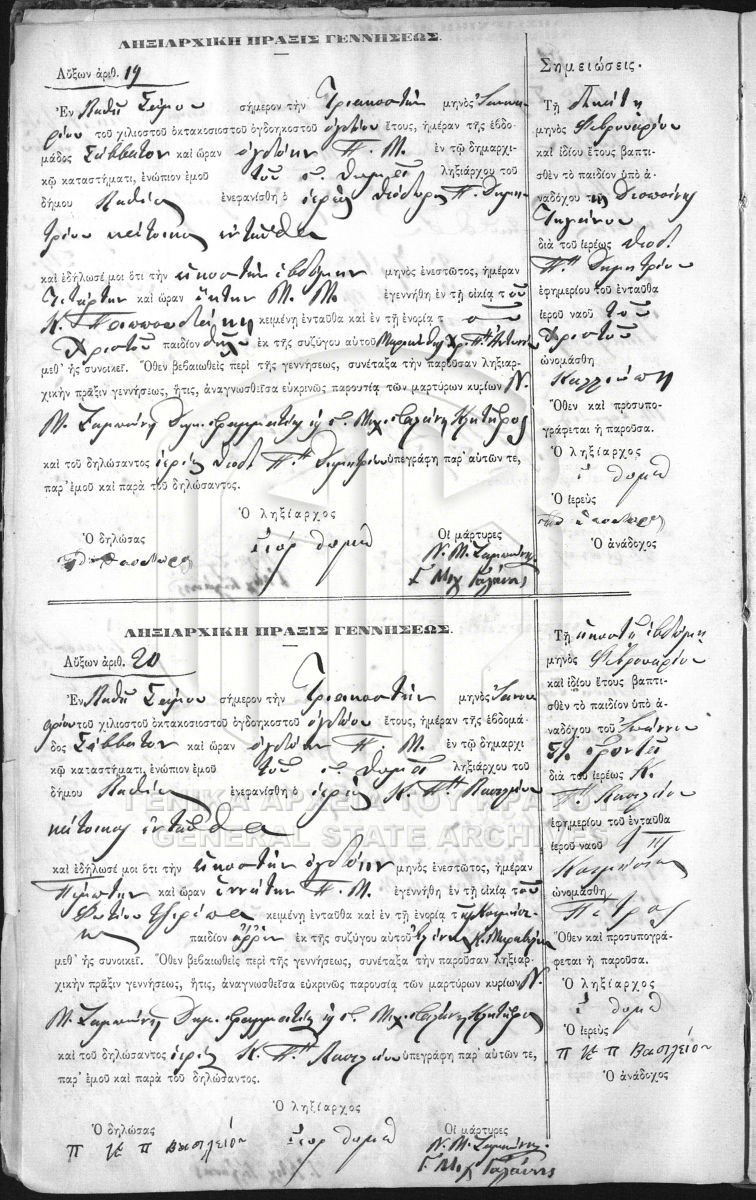 ΛΗΞΙΑΡΧΙΚΗ ΠΡΑΞΙΣ ΓΕΝΝΗΣΕΩΣ.
Αὔξων ἀριθ. 19
Ἐν σήμερον τὴν Τριακοστὴν μηνὸς Ἰανουα-
ρίου τοῦ χιλιοστοῦ ὀκτακοσιοστοῦ ὀγδοηκοστοῦ ὀγδόου ἔτους, ἡμέραν τῆς ἑβδο-
μάδος Σάββατον καὶ ὥραν ὀγδόην Π. Μ. ἐν τῷ δημαρχι-
κῷ καταστήματι, ἐνώπιον ἐμοῦ τοῦ Γ. Θωμᾶ ληξιάρχου τοῦ
δήμου ἐνεφανίσθη ὁ ἱερεὺς Θεόδωρος Π. Δημη-
τρίου κάτοικος ἐνταῦθα
καὶ ἐδήλωσέ μοι ὅτι τὴν εἰκοστὴν ἑβδόμην μηνὸς ἐνεστῶτος, ἡμέραν
Τετάρτην καὶ ὥραν ἕκτην Μ. Μ. ἐγεννήθη ἐν τῇ οἰκίᾳ τοῦ
Κ. κειμένῃ ἐνταῦθα καὶ ἐν τῇ ἐνορίᾳ τοῦ
Χριστοῦ παιδίον θῆλυ ἐκ τῆς συζύγου αὐτοῦ
μεθ' ἧς συνοικεῖ. Ὅθεν βεβαιωθεὶς περὶ τῆς γεννήσεως, συνέταξα τὴν παροῦσαν ληξιαρ-
χικὴν πρᾶξιν γεννήσεως, ἥτις, ἀναγνωσθεῖσα εὐκρινῶς παρουσίᾳ τῶν μαρτύρων κυρίων Ν.
Μ. Γαλάνη Κλητῆρος
καὶ τοῦ δηλώσαντος ἱερέως Θεοδ. Π. Δημητρίου ὑπεγράφη παρ' αὐτῶν τε,
παρ' ἐμοῦ καὶ παρὰ τοῦ δηλώσαντος.
Ὁ ληξίαρχος
Ὁ δηλώσας
Οἱ μάρτυρες
Γεόρ Θωμᾶ
Γ. Μιχ Γαλάνης
Σημειώσεις.
Τῇ
μηνὸς Φεβρουαρίου
καὶ ἰδίου ἔτους βαπτι-
σθὲν τὸ παιδίον ὑπὸ ἀ-
ναδόχου τῆς Δεσποίνης
διὰ τοῦ ἱερέως Θεοδ.
Π. Δημητρίου
ἐφημερίου τοῦ ἐνταῦθα
ἱεροῦ ναοῦ τοῦ
Χριστοῦ
ὠνομάσθη
Καλλιόπη
Ὅθεν καὶ προσυπο-
γράφεται ἡ παροῦσα.
Ὁ ληξίαρχος
Γ Θωμᾶ
Ὁ ἱερεὺς
Ὁ ἀνάδοχος
ΛΗΞΙΑΡΧΙΚΗ ΠΡΑΞΙΣ ΓΕΝΝΗΣΕΩΣ.
Αὔξων ἀριθ. 20
Ἐν σήμερον τὴν Τριακοστὴν μηνὸς Ἰανου-
αρίου τοῦ χιλιοστοῦ ὀκτακοσιοστοῦ ὀγδοηκοστοῦ ὀγδόου ἔτους, ἡμέραν τῆς ἑβδομά-
δος Σάββατον καὶ ὥραν ὀγδόην Π. Μ. ἐν τῷ δημαρχι-
κῷ καταστήματι, ἐνώπιον ἐμοῦ τοῦ Γ. Θωμᾶ ληξιάρχου τοῦ
δήμου ἐνεφανίσθη ὁ ἱερεὺς Κ. Π. Βασιλείου
κάτοικος ἐνταῦθα
ΓΕΝΙΚΑ ΑΡΧΕΙΑ ΤΟΥ ΚΡΑΤΟΥΣ
GENERAL STATE ARCHIVES
καὶ ἐδήλωσέ μοι ὅτι τὴν εἰκοστὴν ὀγδόην μηνὸς ἐνεστῶτος, ἡμέραν
Πέμπτην καὶ ὥραν ἐννάτην Π. Μ. ἐγεννήθη ἐν τῇ οἰκίᾳ τοῦ
Φωτίου κειμένῃ ἐνταῦθα καὶ ἐν τῇ ἐνορίᾳ τῆς Κοιμήσε-
ως παιδίον ἄρρεν ἐκ τῆς συζύγου αὐτοῦ Ἑλένης
μεθ' ἧς συνοικεῖ. Ὅθεν βεβαιωθεὶς περὶ τῆς γεννήσεως, συνέταξα τὴν παροῦσαν ληξιαρ-
χικὴν πρᾶξιν γεννήσεως, ἥτις, ἀναγνωσθεῖσα εὐκρινῶς παρουσίᾳ τῶν μαρτύρων κυρίων Ν.
Μ. Γαλάνη Κλητῆρος
καὶ τοῦ δηλώσαντος ἱερέως Κ. Π. Βασιλείου ὑπεγράφη παρ' αὐτῶν τε,
παρ' ἐμοῦ καὶ παρὰ τοῦ δηλώσαντος.
Ὁ ληξίαρχος
Ὁ δηλώσας
Οἱ μάρτυρες
Π Κ Π Βασιλείου
Γεόρ Θωμᾶ
Γ. Μιχ Γαλάνης
Τῇ εἰκοστῇ ἑβδόμῃ
μηνὸς Φεβρουαρίου
καὶ ἰδίου ἔτους βαπτι-
σθὲν τὸ παιδίον ὑπὸ ἀ-
ναδόχου τοῦ Ἰωάννου
διὰ τοῦ ἱερέως Κ.
Π. Βασιλείου
ἐφημερίου τοῦ ἐνταῦθα
ἱεροῦ ναοῦ τῆς
Κοιμήσεως
ὠνομάσθη
Πέτρος
Ὅθεν καὶ προσυπογρά-
φεται ἡ παροῦσα.
Ὁ ληξίαρχος
Γ Θωμᾶ
Ὁ ἱερεὺς
Π Κ Π Βασιλείου
Ὁ ἀνάδοχος